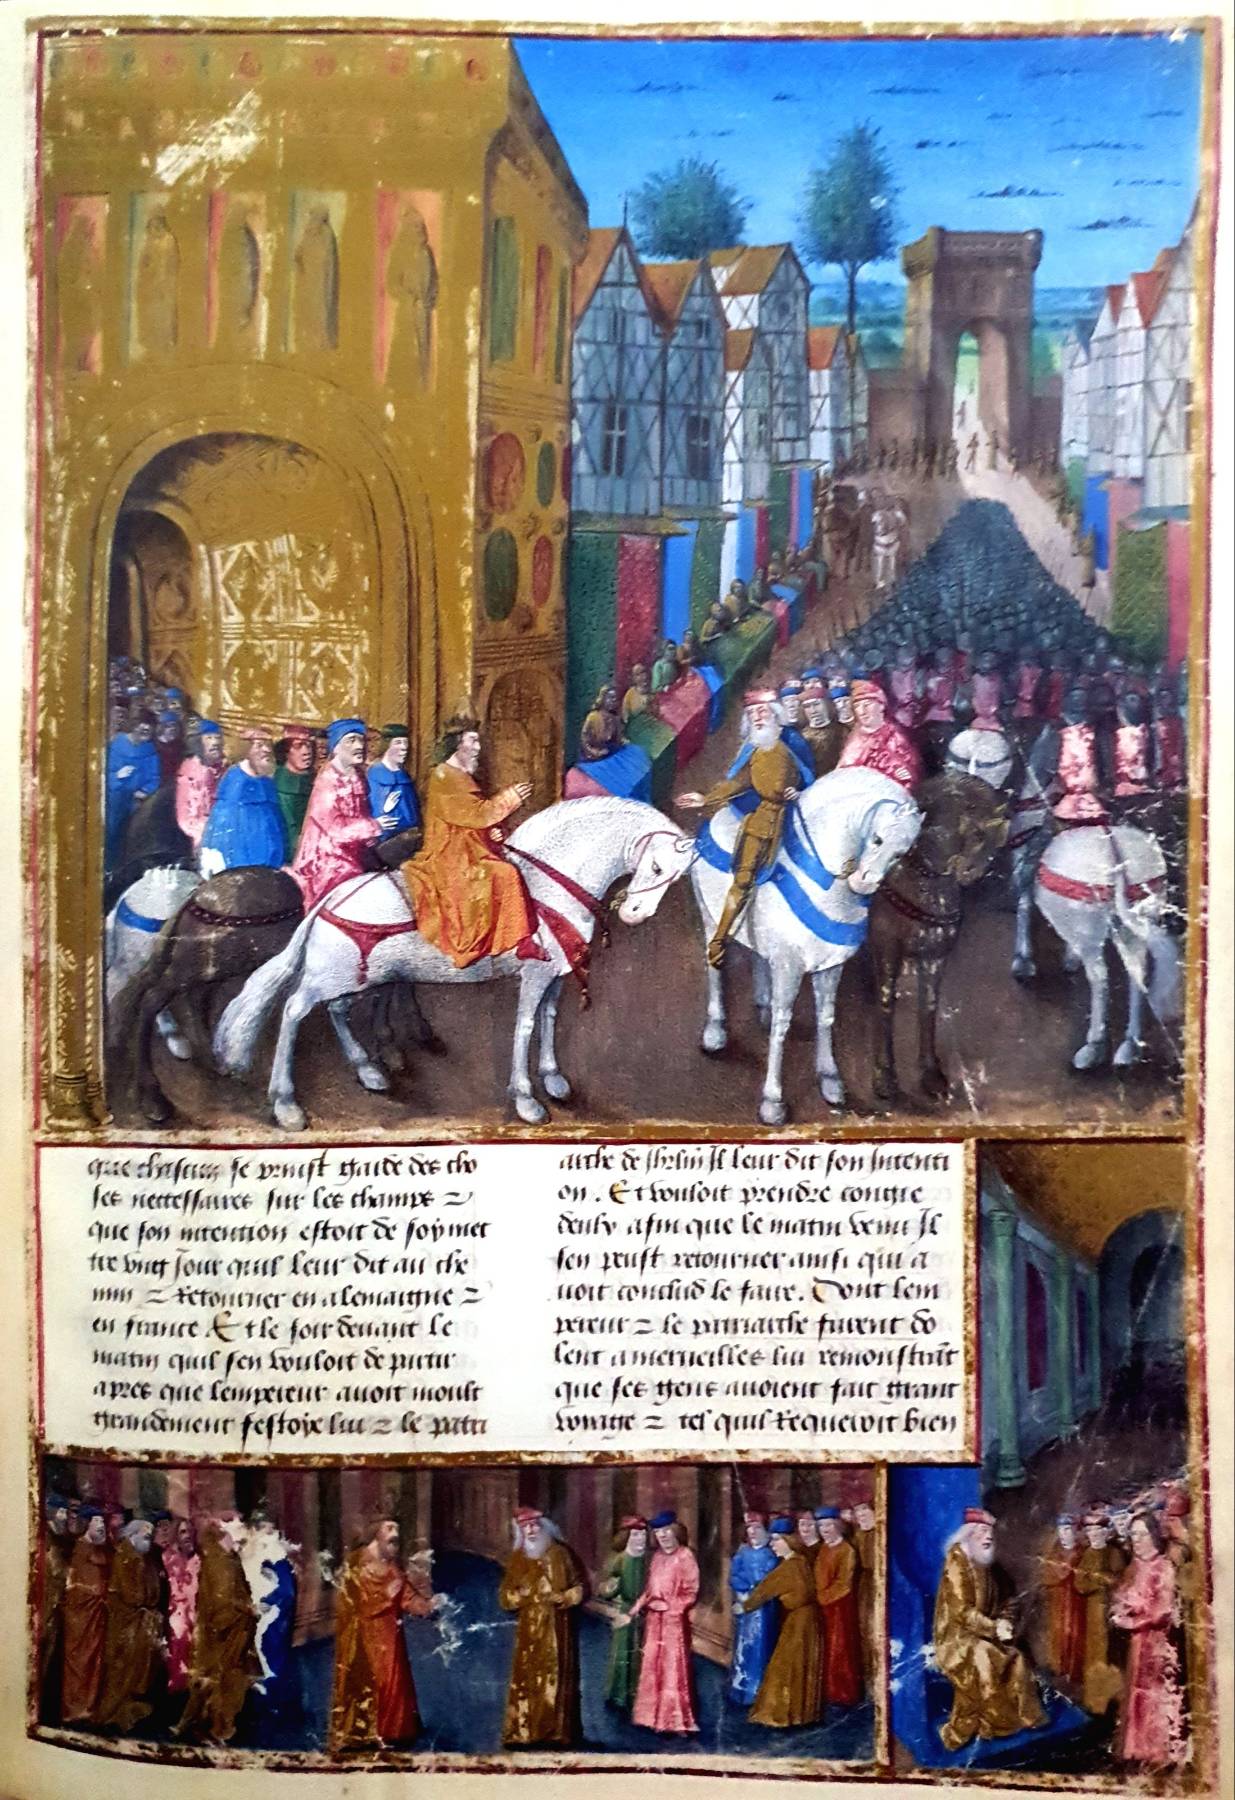 que chascun se prinst garde des cho
ses neccessaires sur les champs z
que son intention estoit de soy met
tre vng Jour quil leur dit au che
min z Retourner en alemaigne z
en france Et le soir deuant le
matin quil sen vouloit de partir
apres que lempereur auoit moult
grandement festoye lui z le patri
arche de Jhrlm Il leur dit son Intenti
on . Et vouloit prendre congie
deulx afin que le matin venu Il
sen peust retourner ainsi quil a
uoit conclud le faire . Dont lem
pereur z le patriarche furent do
lent a merueilles lui remonstrãt
que ses gens auoient fait grant
voiage z tel quil Requeroit bien